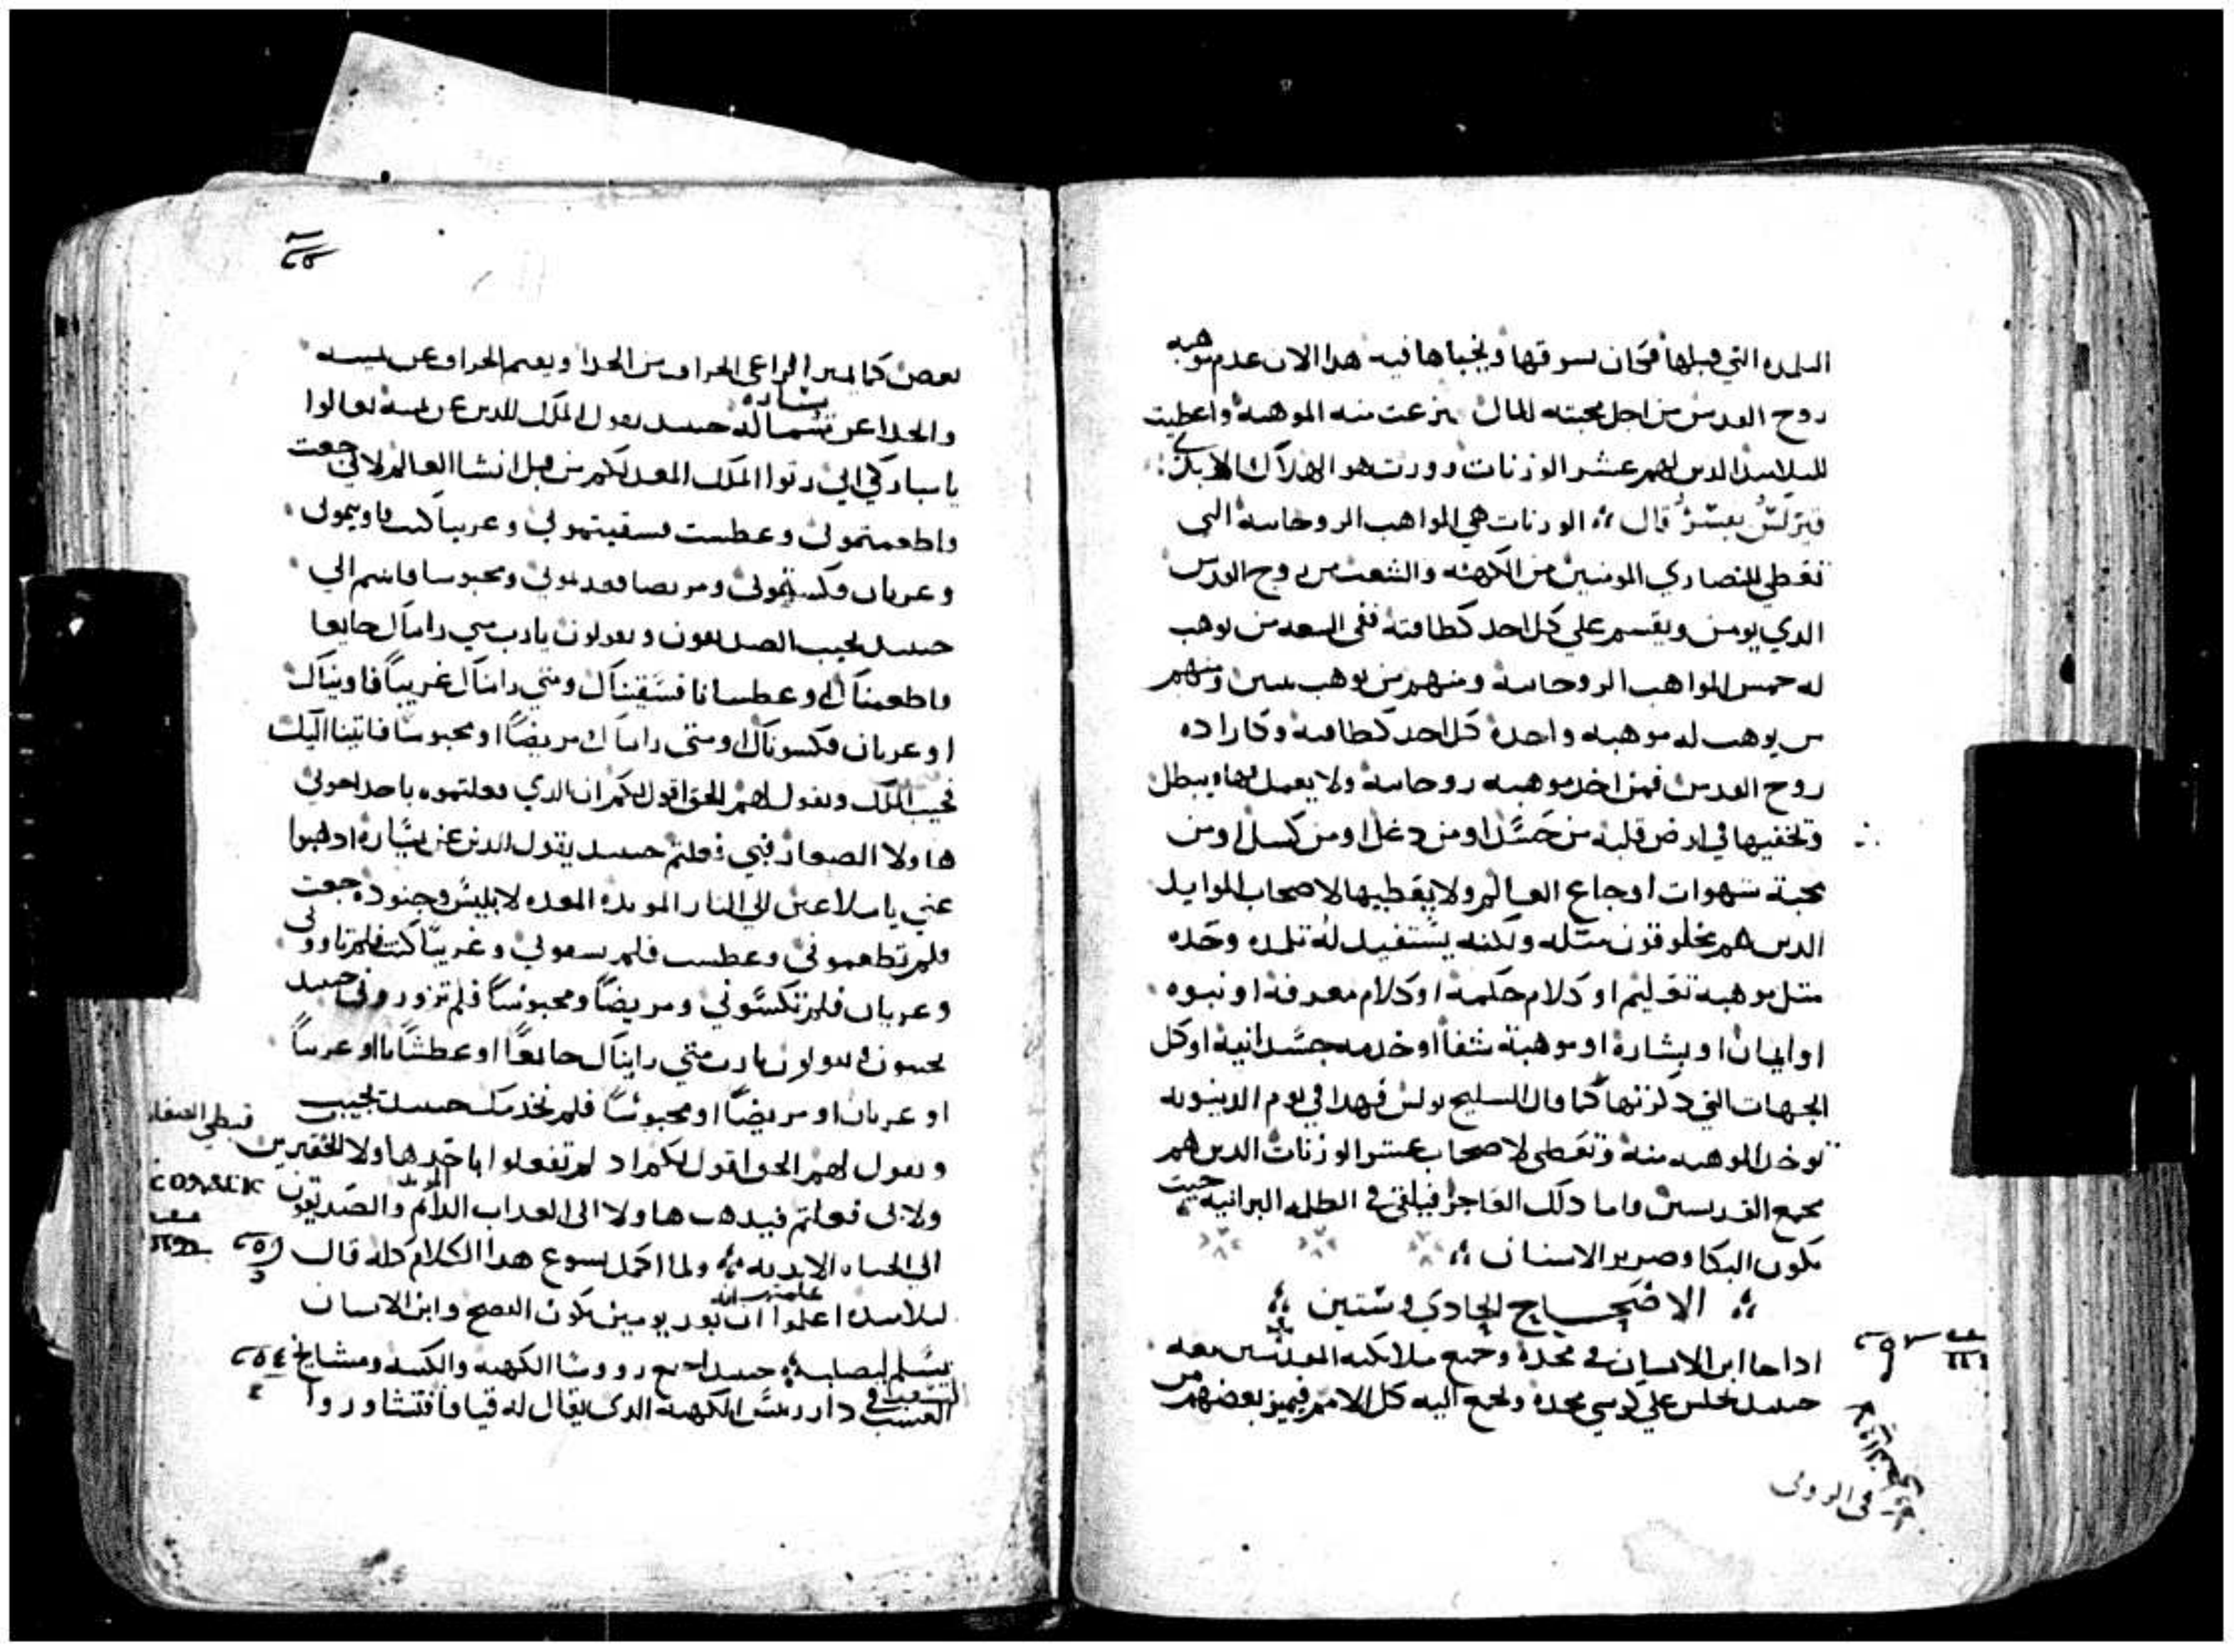 روح القدس من اجل محبته للمال نزعت منه الموهبة واعطيت
للتلاميذ الذين لهم عشر الوزنات
قال الوزنات هي المواهب الروحانية التي
تعطي للنصاري المومنين من الكهنه والشعب من روح القدس
الذي يومن ويقسم علي كل احد كطاقته ففي البيعه من يوهب
له خمس المواهب الروحانية ومنهم من يوهب ثنتين ومنهم
من يوهب له موهبه واحدة كل احد كطاقته وكاراده
روح القدس فمن اخذ موهبه روحانية ولا يعمل بها ويبطل
وتخفيها في ارض قلبه من حسد او من دغل او من كسل او من
محبة شهوات اوجاع العالم ولا يعطيها لاصحاب الموايد
الذين هم مخلوقون مثله ولكنه يستفيد له تلده وحده
مثل موهبة تعليم او كلام حكمة او كلام معرفة او نبوه
او ايمان او بشارة او موهبة شفا او خدمه جسدانية او كل
الجهات التي ذكرتها كما قال السليح بولس فهدا في يوم الدينونه
توخذ الموهبه منه وتعطى لاصحاب عشر الوزنات الذين هم
مجمع القديسين واما ذلك العاجز فيلقى في الظلمه البرانيه حيث
يكون البكا وصرير الاسنان
الاصحاح الحادي وستين
اذا جا ابن الانسان في مجدة وجميع ملايكته المقدسين معه
حينيد يجلس علي كرسي مجده وتجمع اليه كل الامم فيميز بعضهم من
في الرومى
بعض كما يميز الراعي الخراف من الجدا ويقيم الخراف عن يمينه
والجدا عن شماله حينيد يقول الملك للذين عن يمينه تعالوا
يساره
يا مباركي ابي رثوا الملك المعد لكم من قبل انشا العالم لاني جعت
واطعمتموني وعطشت فسقيتموني وغريبا كنت فاويتموني
وعريان فكستموني ومريضا فعدتموني ومحبوسا فاتيتم الي
حينيد يجيب الصديقون ويقولون يارب متي رايناك جايعا
فاطعمناك او عطشانا فسقيناك ومتي رايناك غريبا فاويناك
او عريان فكسوناك او متى رايناك مريضا او محبوسا فاتينا اليك
فيجيب الملك ويقول لهم الحق اقول لكم ان الذي فعلتموه باحد اخوتي
هاولا الصغار فبي فعلتم حينيد يقول للذين عن يساره اذهبوا
عني يا ملاعين الي النار الموبده المعده لابليس وجنوده جعت
فلم تطعموني وعطشت فلم تسقوني وغريبا كنت فلم تاووني
وعريان فلم تكسوني ومريضا ومحبوسا فلم تزوروني حينيد
يجيبون ويقولون يارب متي رايناك جايعا او عطشانا او غريبا
او عريان او مريضا او محبوسا فلم نخدمك حينيد يجيب
ويقول لهم الحق اقول لكم اذ لم تفعلوا باحد هاولا الحقيرين
قبطي الصغار
ولا بي فعلتم فيذهب هاولا الى العداب الدايم والصديقون
الموبد
الى الحياه الابديه ولما اكمل يسوع هدا الكلام كله قال
لتلاميده اعلموا ان بعد يومين يكون الفصح وابن الانسان
يسلم ليصلب حينيد اجتمع رووسا الكهنه والكتبه ومشايخ
الشعب في دار رييس الكهنه الذي يقال له قيافا فتشاوروا